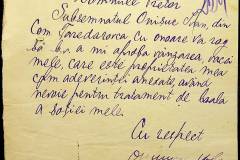 Domnule Pretor
Subsemnatul Onisuc Ion, din
Com. cu onoare vă rog
să b. v. a mi aproba vânzarea vacii
mele, care este proprietatea mea
cfm adeverinței anexate, având
nevoie pentru tratament de boala
a soției mele.
Cu respect